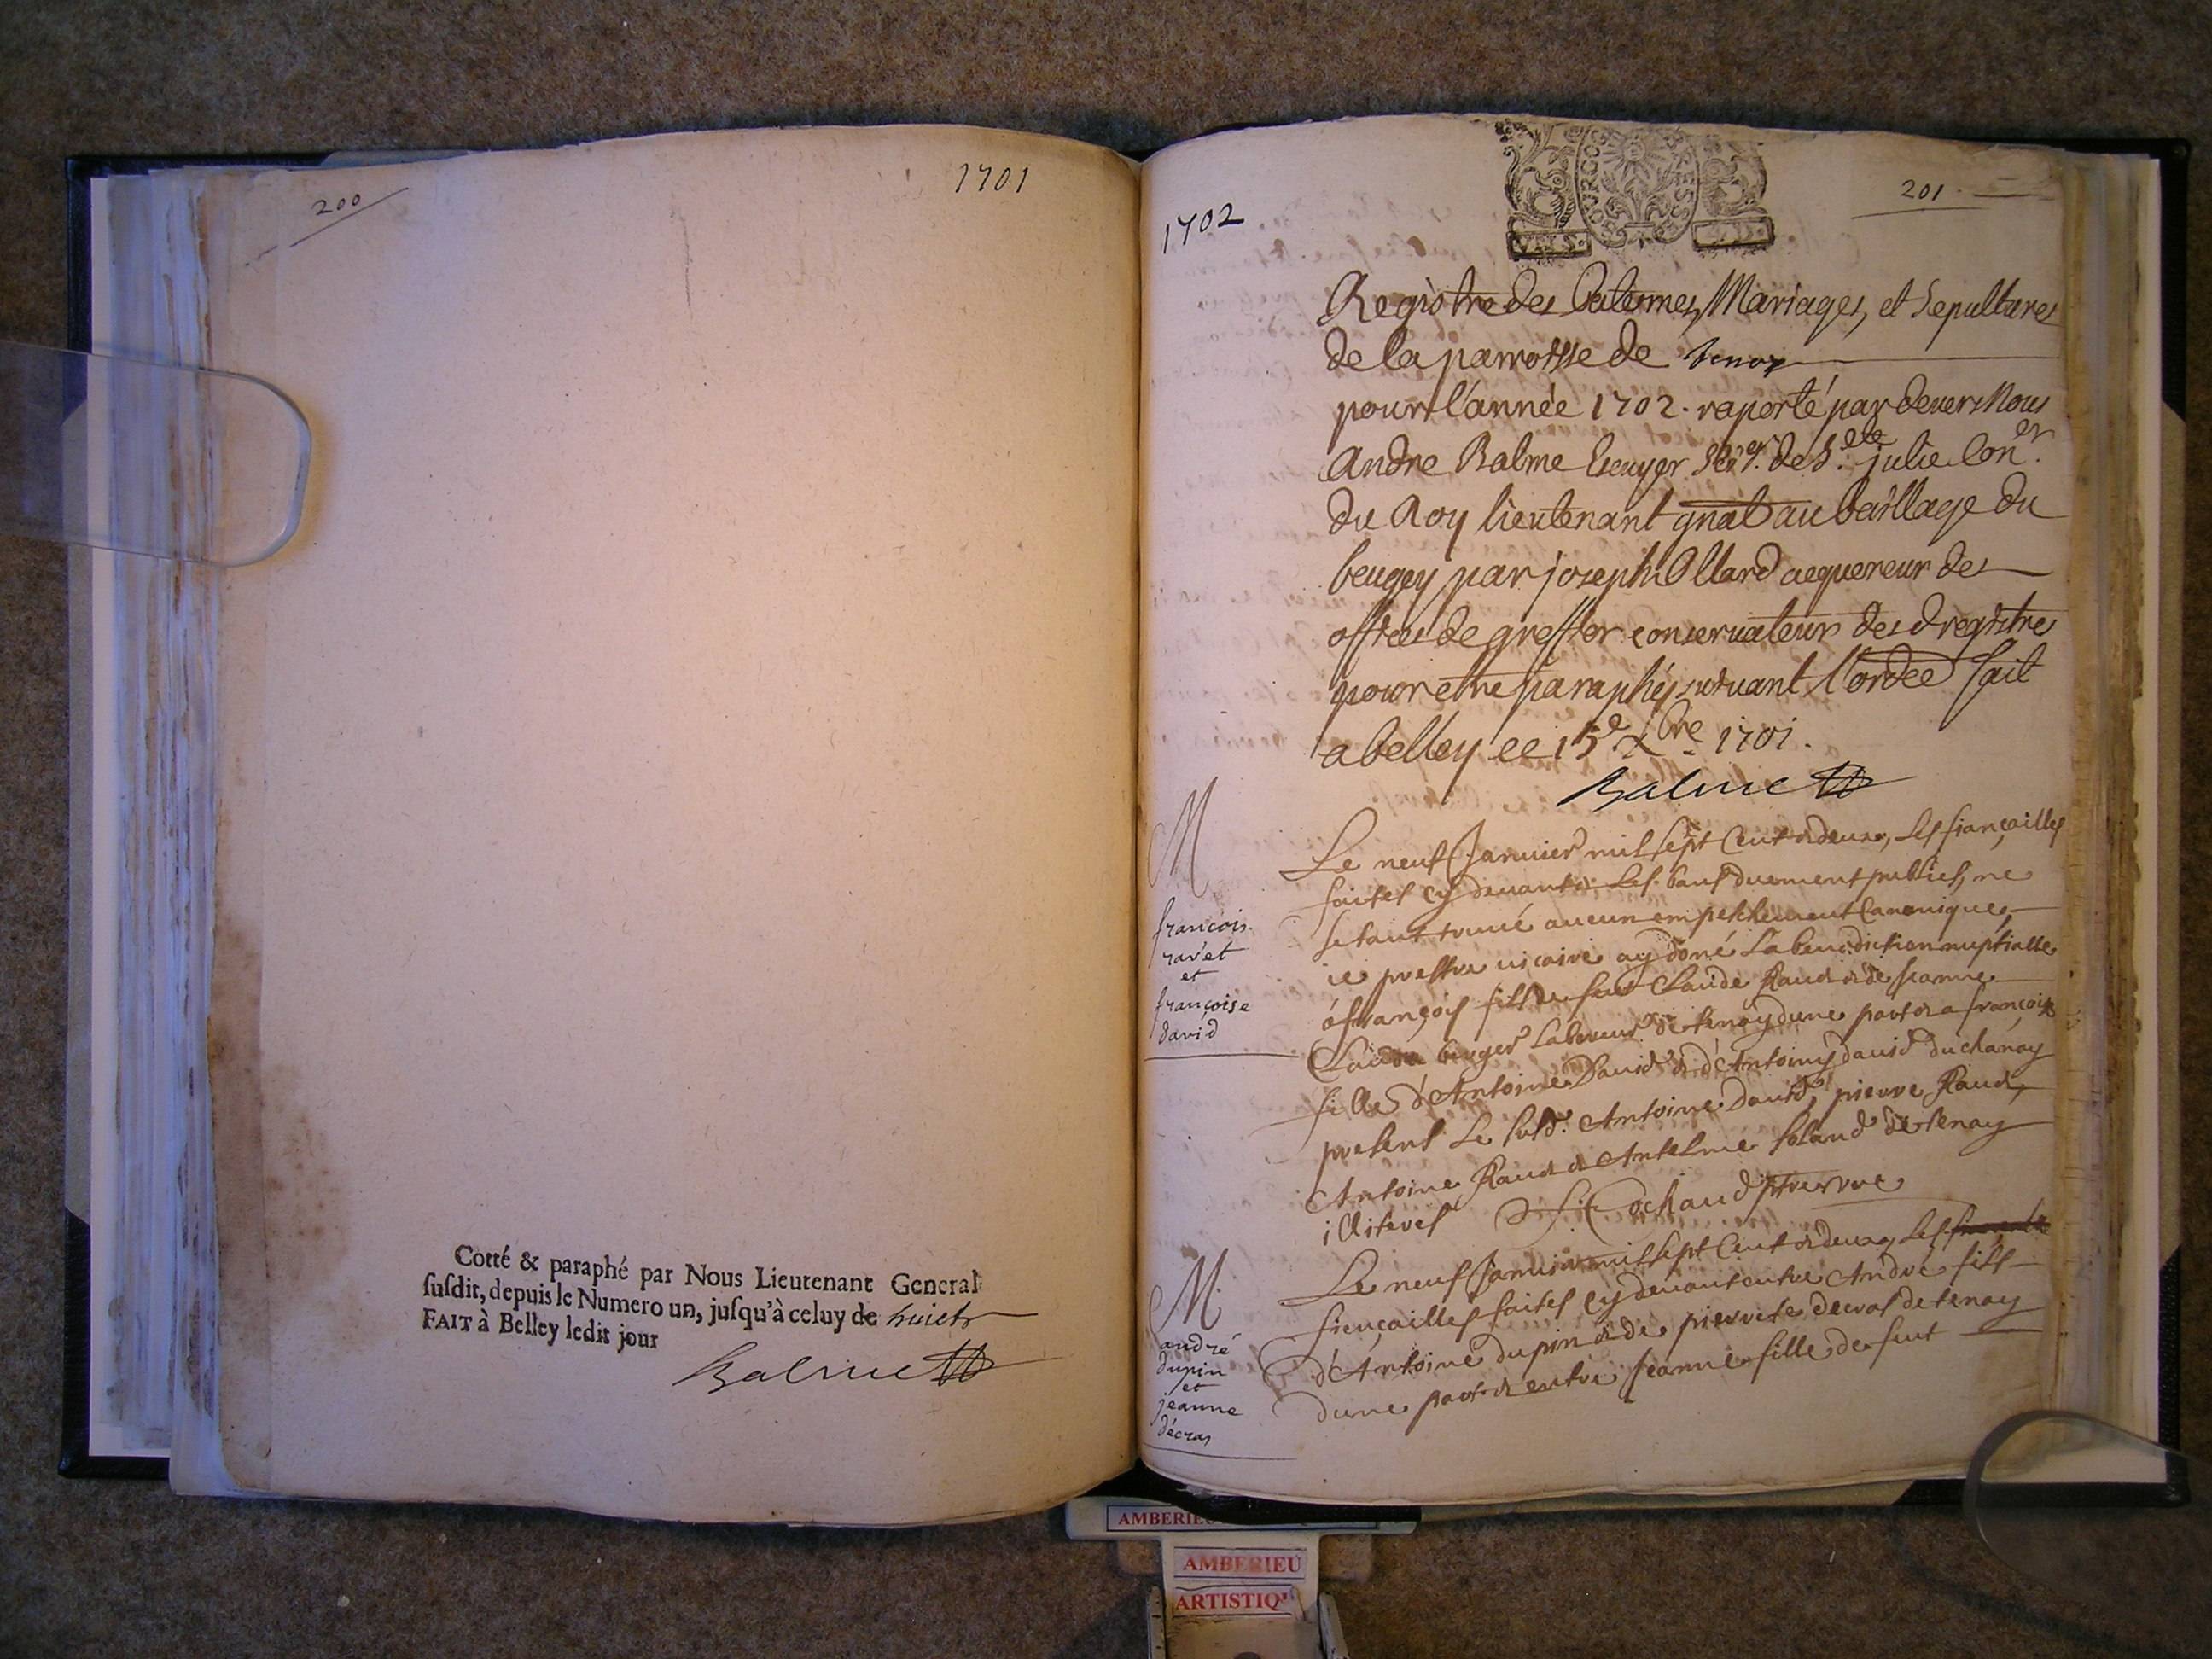 200
1701
Cotté & paraphé par Nous Lieutenant General
ſuſdit, depuis le Numero un, juſqu'à celuy de huict
FAIT à Belley ledit jour
Balme
1702
201
BOURGOG BRESSE
Registre des Batesmes, Mariages, et Sepultures
de la parroisse de tenay
pour l'année 1702. raporté par devers Nous
Andre Balme Escuyer Sgr. de Ste. julie Con.er
du Roy lieutenant gnal au baillage du
beugey par joseph Ollard acquereur des
offices de greffier conservateur desd registres
pour etre paraphés suivant l'ordce fait
a belley ce 15e xbre 1701.
Balme
M
françois
ravet
et
françoise
david
Le neuf Janvier mil sept Cent & deux, les fiançailles
faites cy devant & les bans duement publies, ne
sestant trouvé aucun empeschement Canonique,
ie prestre vicaire ay doné La benediction nuptialle
à françois fils de feu Claude Ravet & de jeanne
Claudaz berger Laboureur de tenay dune part & a françoise
fille d'Antoine David & d'Antoiny david du chanay
presens Le susd. Antoine David, pierre Ravet,
Antoine Ravet & Antelme Poland de tenay
illiteres Cochaud ptre vre
M.
andré
dupin
et
jeanne
décras
Le neuf Janvier mil sept Cent & deux, Les
fiençailles faites cy devant entre André fils
d'Antoine dupin & de pierrete decras de tenay
dune part & entre jeanne fille de feut
AMBERIEU
AMBERIEU
ARTISTIQ